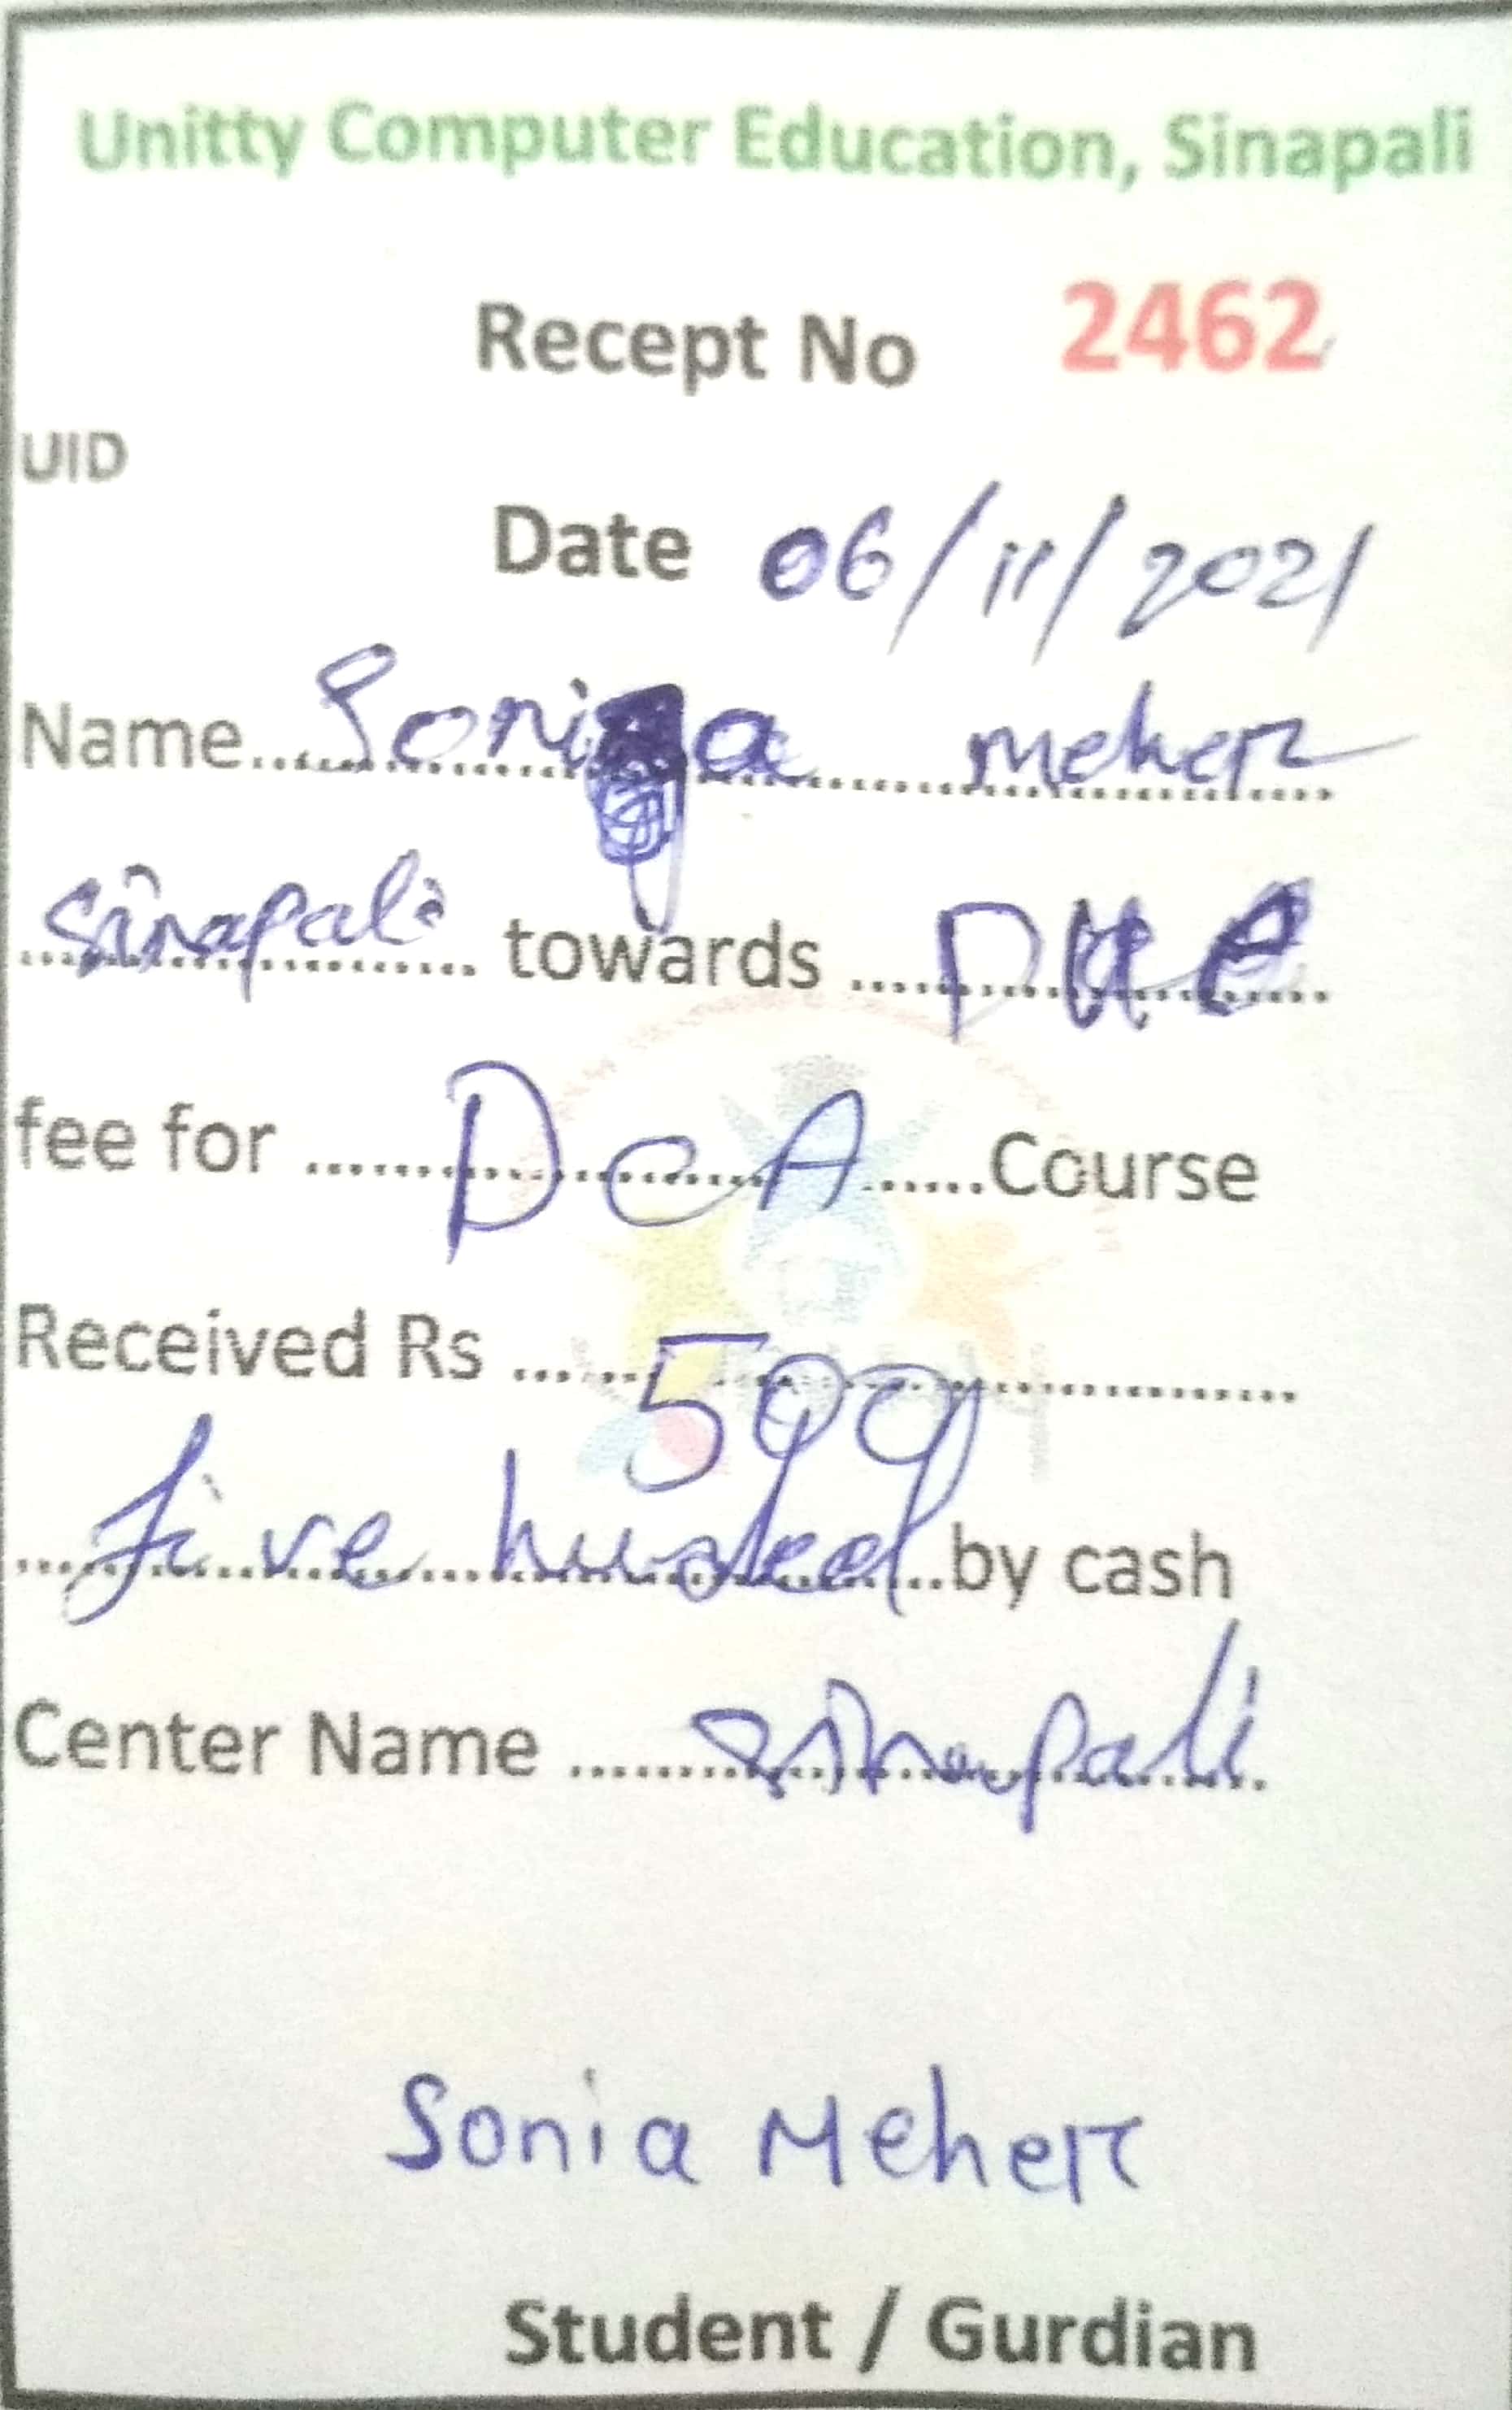 Unitty Computer Education, Sinapali
Recept No 2462
UID
Date 06/11/2021
Name Sonia meher
Sinapali towards Due
fee for DCA Course
Received Rs 500
five hundred by cash
Center Name Sinapali
Sonia Meher
Student / Gurdian